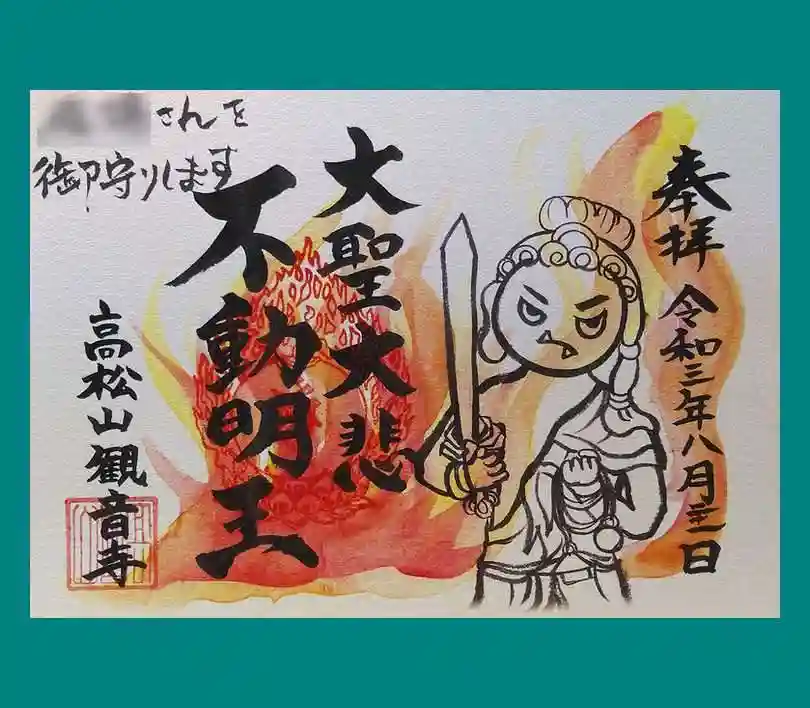 奉拝 令和三年八月三十一日
大聖大悲
不動明王
さんを
御守りします
高松山観音寺